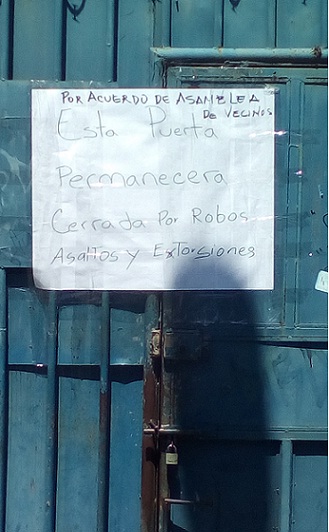 POR ACUERDO DE ASAMBLEA
DE VECINOS
Esta Puerta
Permanecera
Cerrada Por Robos
Asaltos y Extorsiones